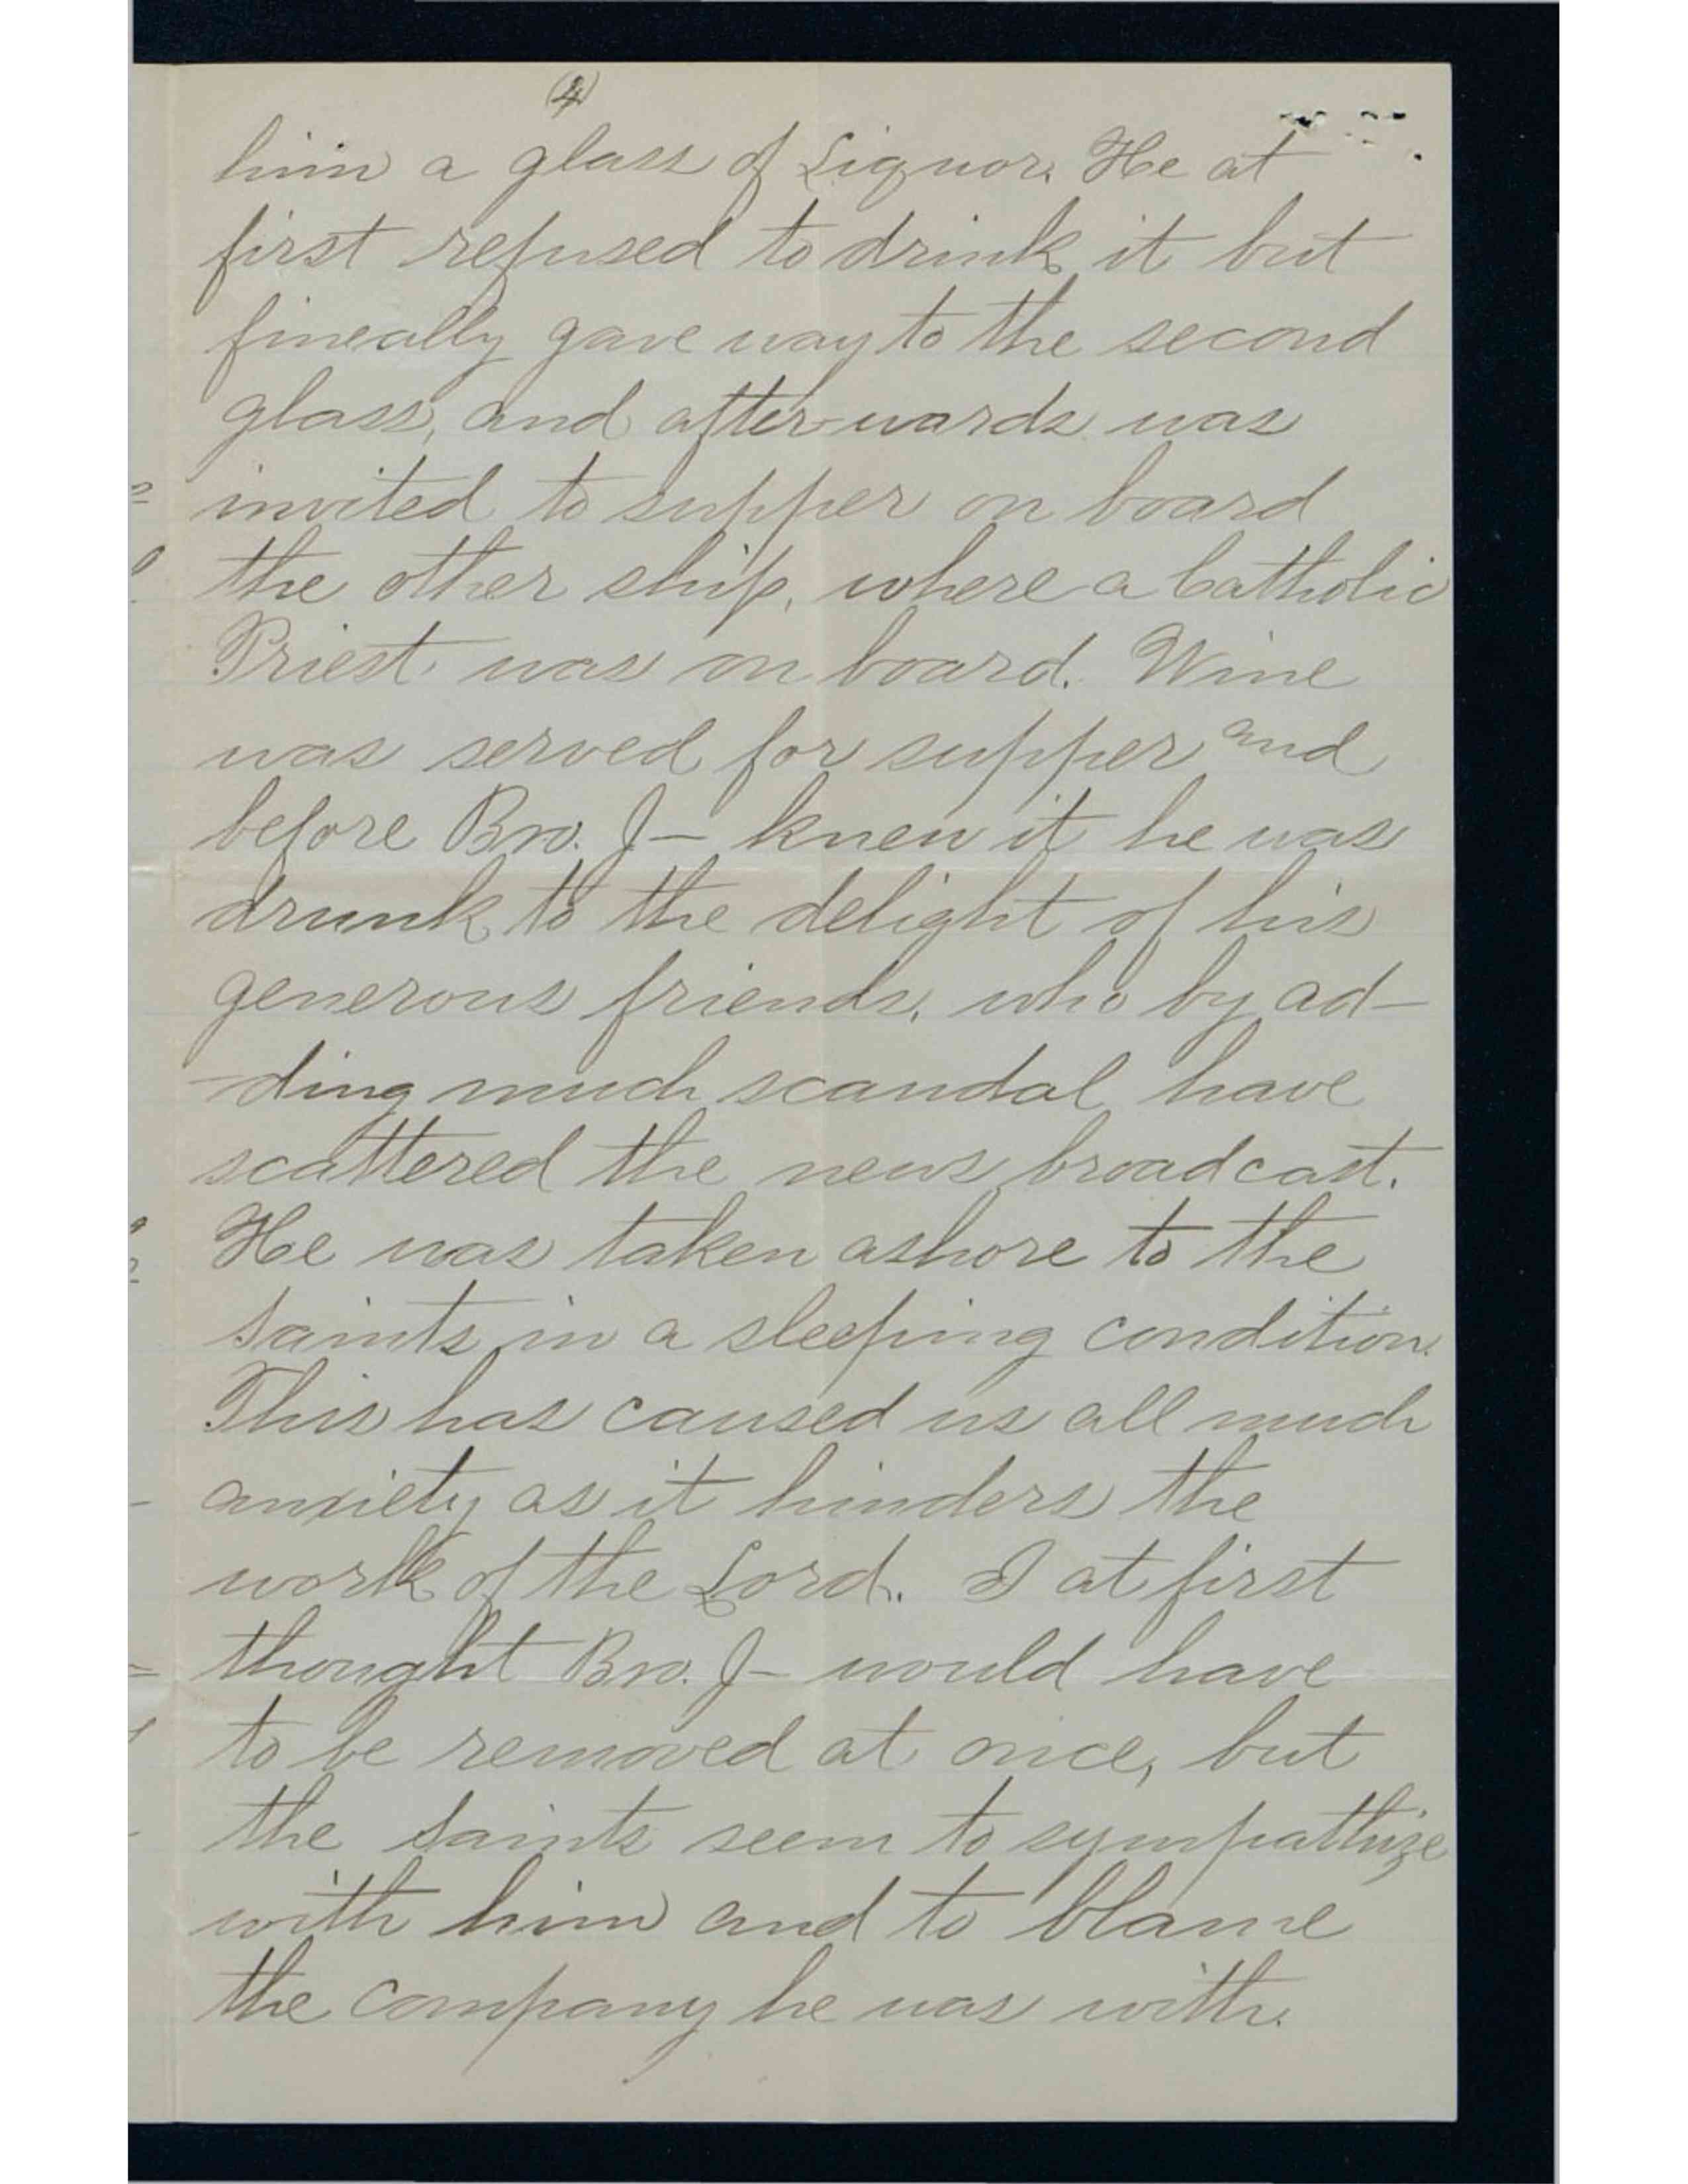 (4)
him a glass of Liquor. He at
first refused to drink it but
fineally gave way to the second
glass, and after-wards was
invited to supper on board
the other ship, where a Catholic
Priest was on board. Wine
was served for supper and
before Bro. J— knew it he was
drunk to the delight of his
generous friends, who by ad-
-ding much scandal have
scattered the news broadcast.
He was taken ashore to the
Saints in a sleeping condition.
This has caused us all much
anxiety as it hinders the
work of the Lord. I at first
thought Bro. J— would have
to be removed at once, but
the Saints seem to sympathize
with him and to blame
the company he was with.